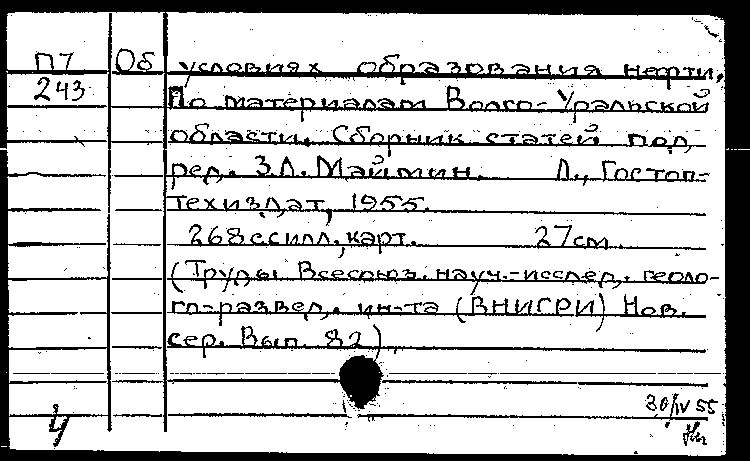 П7 Об условиях образования нефти.
243 По материалам Волго-Уральской
области. Сборник статей под
ред. З.Л. Маймин. Л., Гостоп-
техиздат, 1955.
268 с силл., карт. 27см
(Труды Всесоюз. науч.-исслед. геоло-
го-развед. ин-та (ВНИГРИ) Нов.
сер. Вып. 82).
30/IV 55